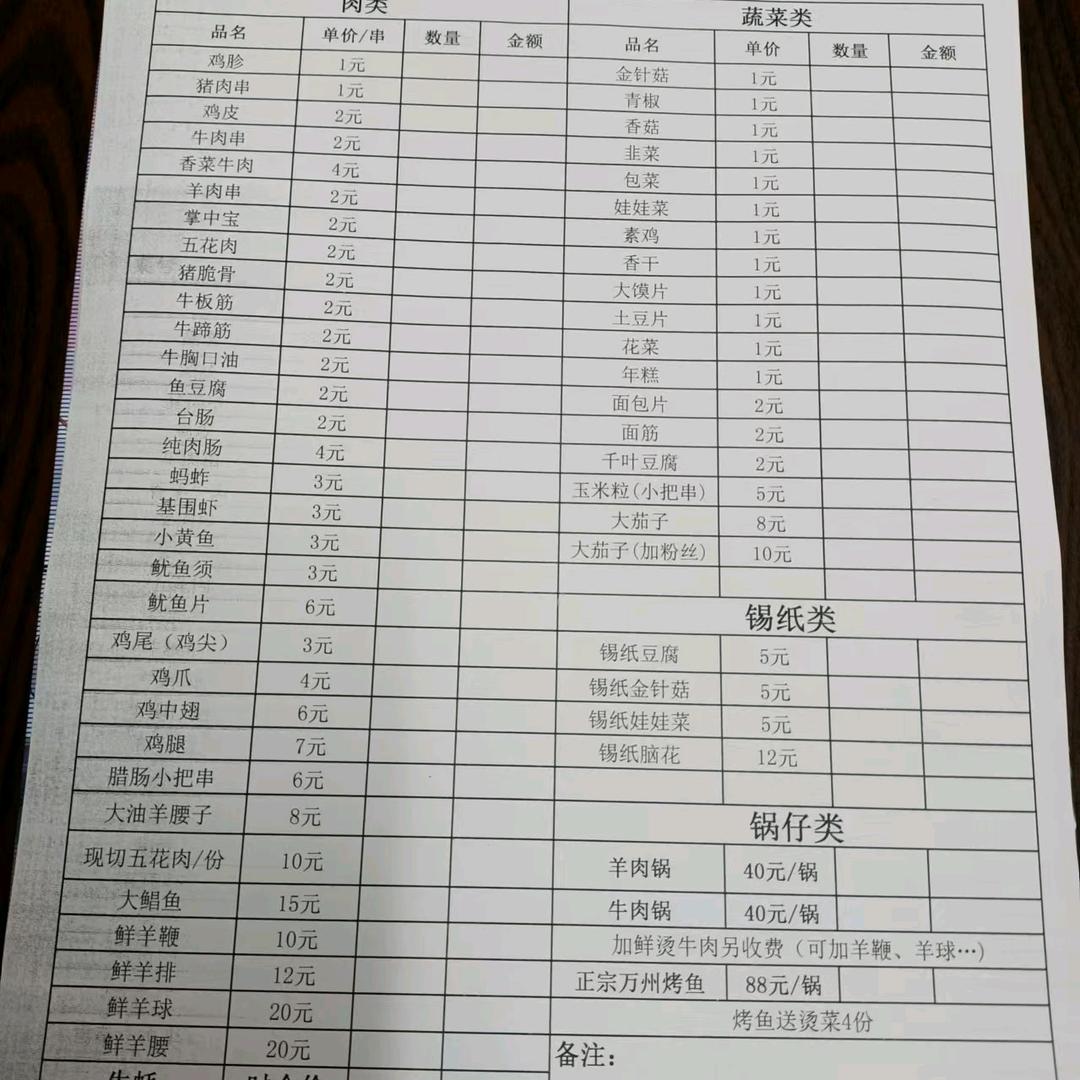 肉类
品名 单价/串 数量 金额
鸡胗 1元
猪肉串 1元
鸡皮 2元
牛肉串 2元
香菜牛肉 4元
羊肉串 2元
掌中宝 2元
五花肉 2元
猪脆骨 2元
牛板筋 2元
牛蹄筋 2元
牛胸口油 2元
鱼豆腐 2元
台肠 2元
纯肉肠 4元
蚂蚱 3元
基围虾 3元
小黄鱼 3元
鱿鱼须 3元
鱿鱼片 6元
鸡尾（鸡尖） 3元
鸡爪 4元
鸡中翅 6元
鸡腿 7元
腊肠小把串 6元
大油羊腰子 8元
现切五花肉/份 10元
大鲳鱼 15元
鲜羊鞭 10元
鲜羊排 12元
鲜羊球 20元
鲜羊腰 20元
蔬菜类
品名 单价 数量 金额
金针菇 1元
青椒 1元
香菇 1元
韭菜 1元
包菜 1元
娃娃菜 1元
素鸡 1元
香干 1元
大馍片 1元
土豆片 1元
花菜 1元
年糕 1元
面包片 2元
面筋 2元
千叶豆腐 2元
玉米粒(小把串) 5元
大茄子 8元
大茄子(加粉丝) 10元
锡纸类
锡纸豆腐 5元
锡纸金针菇 5元
锡纸娃娃菜 5元
锡纸脑花 12元
锅仔类
羊肉锅 40元/锅
牛肉锅 40元/锅
加鲜烫牛肉另收费（可加羊鞭、羊球…）
正宗万州烤鱼 88元/锅
烤鱼送烫菜4份
备注：